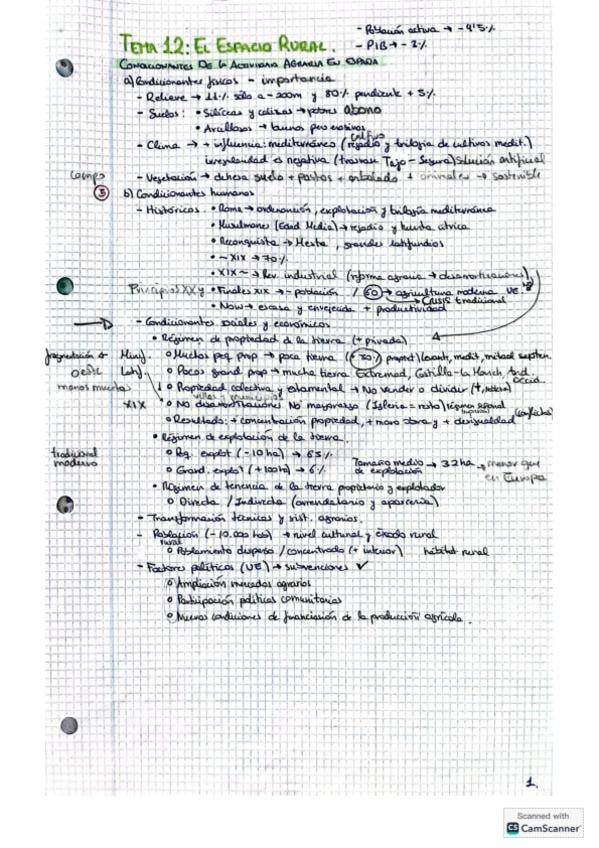 - Población activa → - 4'5%
TEMA 12: EL ESPACIO RURAL. - PIB → - 2%
CONDICIONANTES DE LA ACTIVIDAD AGRARIA EN ESPAÑA
a) Condicionantes físicos - importancia
- Relieve → 11% sólo a - 200m y 80% pendiente + 5%
- Suelos: • Silíceos y calizos → pobres abono
• Arcillosos → buenos pero erosivos
cultivo
- Clima → + influencia: mediterráneo (regadío y trilogía de cultivos medit.)
irregularidad es negativa (trasvase Tajo - Segura) Solución artificial
- Vegetación → dehesa suelo + pastos + arbolado + animales → sostenible
campo
5 b) Condicionantes humanos
- Históricos. • Roma → ordenación, explotación y trilogía mediterránea
• Musulmanes (Edad Media) → regadío y huerta
• Reconquista → Mesta, grandes latifundios
• ~ XIX → 70%
• XIX ~ → Rev. industrial (reforma agraria → desamortizaciones)
Principios XX y • Finales XIX → - población / 60 → agricultura moderna UE '8
Crisis tradicional
• Now → escasa y envejecida + productividad
- Condicionantes sociales y económicos
• Régimen de propiedad de la tierra (+ privada)
Mini. o Muchos peq. prop → poca tierra (50% propiet) levant, medit, mitad septen.
oeste Lati. o Pocos grand prop → mucha tierra Extremad, Castilla-La Manch, And.
occid.
manos muertas o Propiedad colectiva y estamental → No vender o dividir
XIX o No desamortizaciones No mayorazgo (Iglesia = resto) régimen señorial
o Resultado: + concentración propiedad, + mano obra y + desigualdad (conflictos)
• Régimen de explotación de la tierra.
tradicional o Peq. explot (- 10 ha) → 65%
moderno o Grand. explot (+ 100 ha) → 6%
Tamaño medio de explotación → 32 ha → menor que en Europa
• Régimen de tenencia de la tierra propietario y explotador
o Directa / Indirecta (arrendatario y aparcería)
- Transformación técnicas y sist. agrarios.
- Población rural (- 10.000 hab) → nivel cultural y éxodo rural
o Poblamiento disperso / concentrado (+ interior) hábitat rural
- Factores políticos (UE) → subvenciones ✓
o Ampliación mercados agrarios
o Participación políticas comunitarias
o Nuevas condiciones de financiación de la producción agrícola.
1.
Scanned with
CS CamScanner